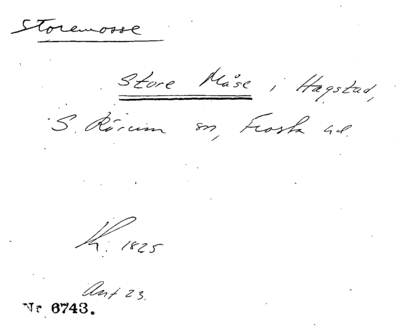 Storemosse
Store Måse i Hagstad,
S. Rörum sn, Frosta hd.
K. 1825
Ant 23.
Nr 6743.